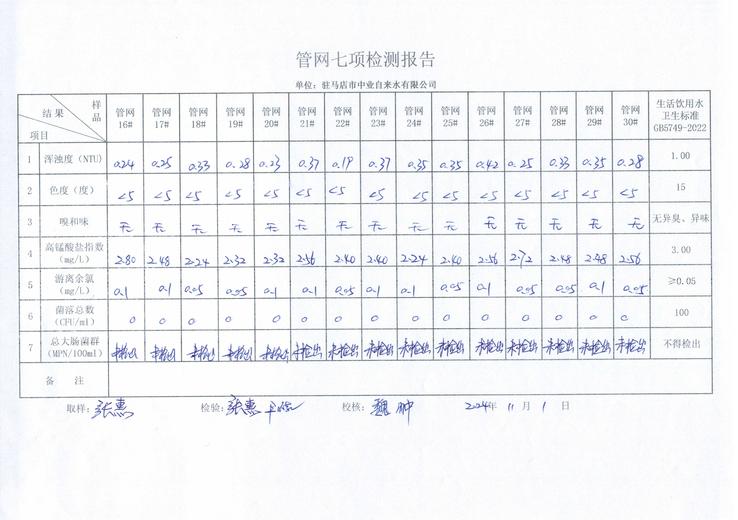 管网七项检测报告
单位：驻马店市中业自来水有限公司
样品 结果 项目 管网16# 管网17# 管网18# 管网19# 管网20# 管网21# 管网22# 管网23# 管网24# 管网25# 管网26# 管网27# 管网28# 管网29# 管网30# 生活饮用水卫生标准GB5749-2022
1 浑浊度（NTU） 0.24 0.25 0.33 0.28 0.23 0.37 0.19 0.37 0.35 0.35 0.42 0.25 0.33 0.35 0.28 1.00
2 色度（度） <5 <5 <5 <5 <5 <5 <5 <5 <5 <5 <5 <5 <5 <5 <5 15
3 嗅和味 无 无 无 无 无 无 无 无 无 无 无 无 无 无 无 无异臭、异味
4 高锰酸盐指数（mg/L） 2.80 2.48 2.24 2.32 2.32 2.56 2.40 2.40 2.24 2.40 2.56 2.72 2.48 2.48 2.56 3.00
5 游离余氯（mg/L） 0.1 0.1 0.05 0.05 0.1 0.1 0.05 0.1 0.1 0.05 0.1 0.05 0.05 0.1 0.05 ≥0.05
6 菌落总数（CFU/ml） 0 0 0 0 0 0 0 0 0 0 0 0 0 0 0 100
7 总大肠菌群（MPN/100ml） 未检出 未检出 未检出 未检出 未检出 未检出 未检出 未检出 未检出 未检出 未检出 未检出 未检出 未检出 未检出 不得检出
备 注
取样：张惠 检验：张惠 校核：魏 2024年 11月 1日